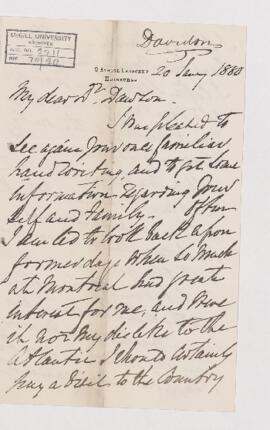 Davidson
McGILL UNIVERSITY
ARCHIVES
ACC. NO.
REF.
EDINBURGH
20 Jany 1880
My dear Dr. Dawson.
I was pleased to
see again your familiar
hand writing, and to get some
information regarding your
self and family. Often
I am led to look back upon
former days when so much
at Montreal had great
interest for me, and were
it not my dislike to the
Atlantic I should certainly
pay a visit to the Country